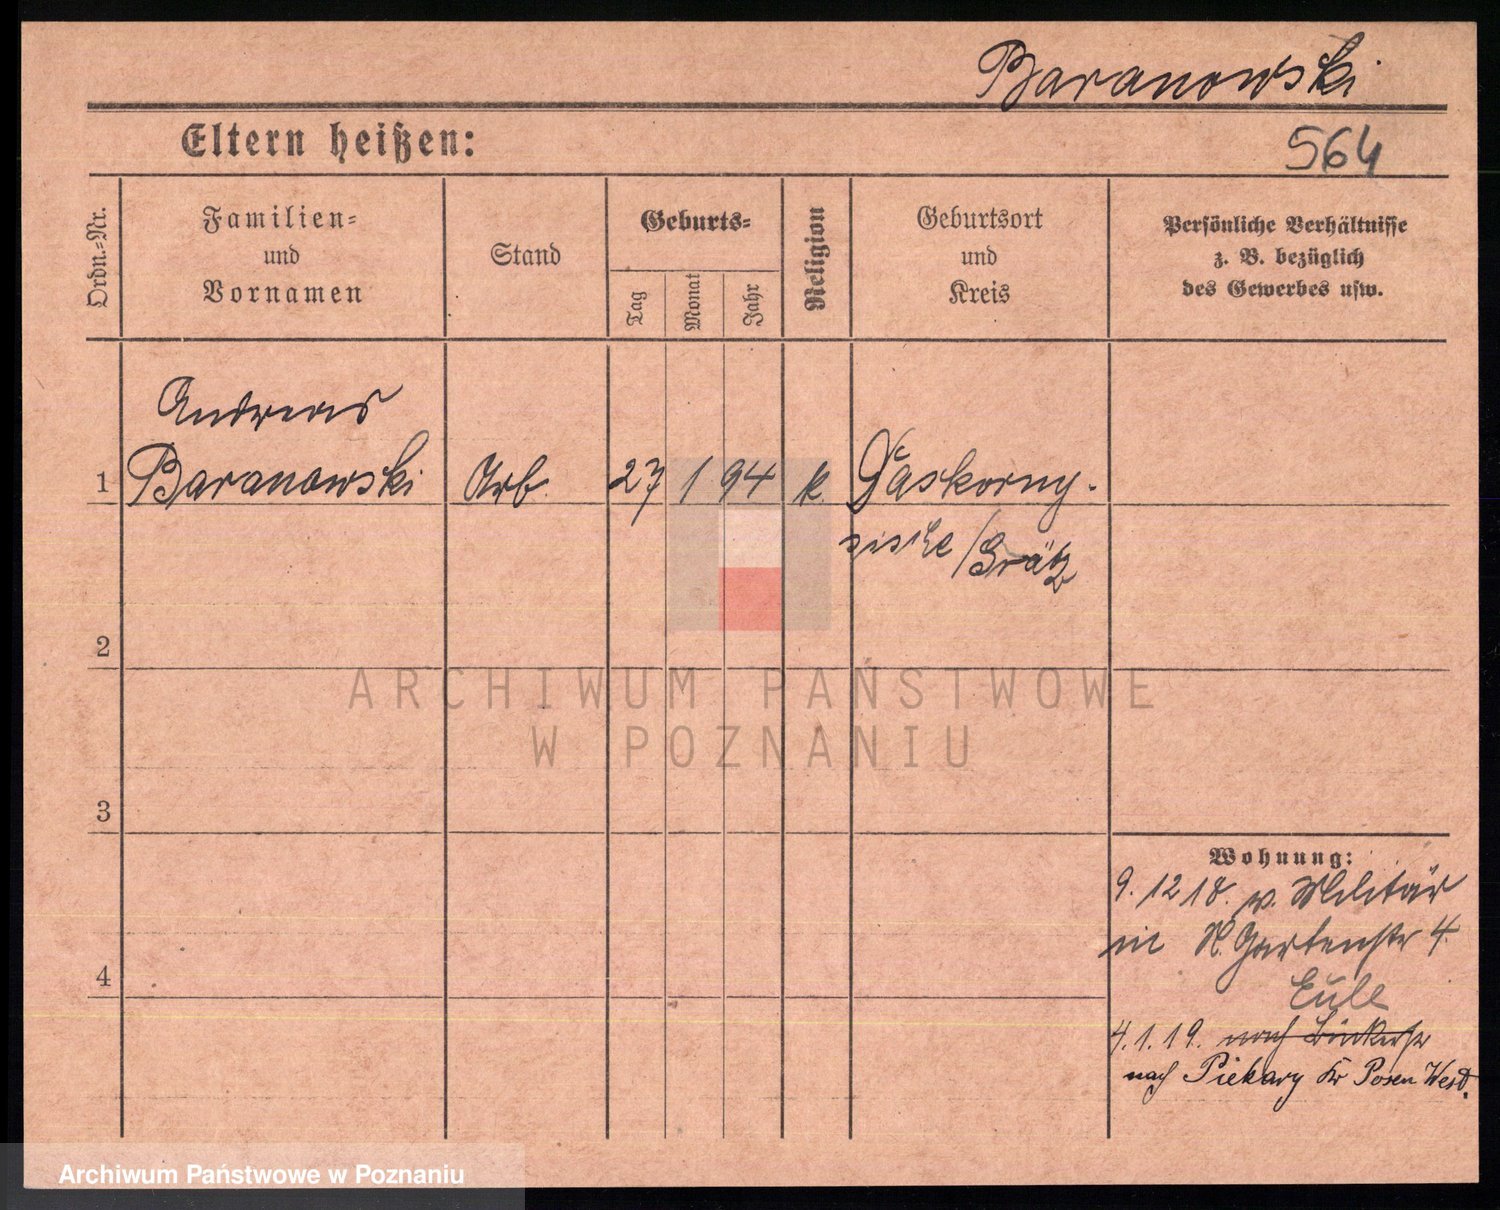 Baranowski
Eltern heißen:
564
Ordn.=Nr.
Familien=
und
Vornamen
Stand
Geburts=
Tag
Monat
Jahr
Religion
Geburtsort
und
Kreis
Persönliche Verhältnisse
z. B. bezüglich
des Gewerbes usw.
Andreas
1 Baranowski Arb. 27 1 94 k.
/Grätz
2
ARCHIWUM PAŃSTWOWE
W POZNANIU
3
Wohnung:
9. 12 18. v. Militär
in N. Gartenstr 4.
4
Eule
4. 1. 19. nach
nach Piekary Kr Posen West.
Archiwum Państwowe w Poznaniu